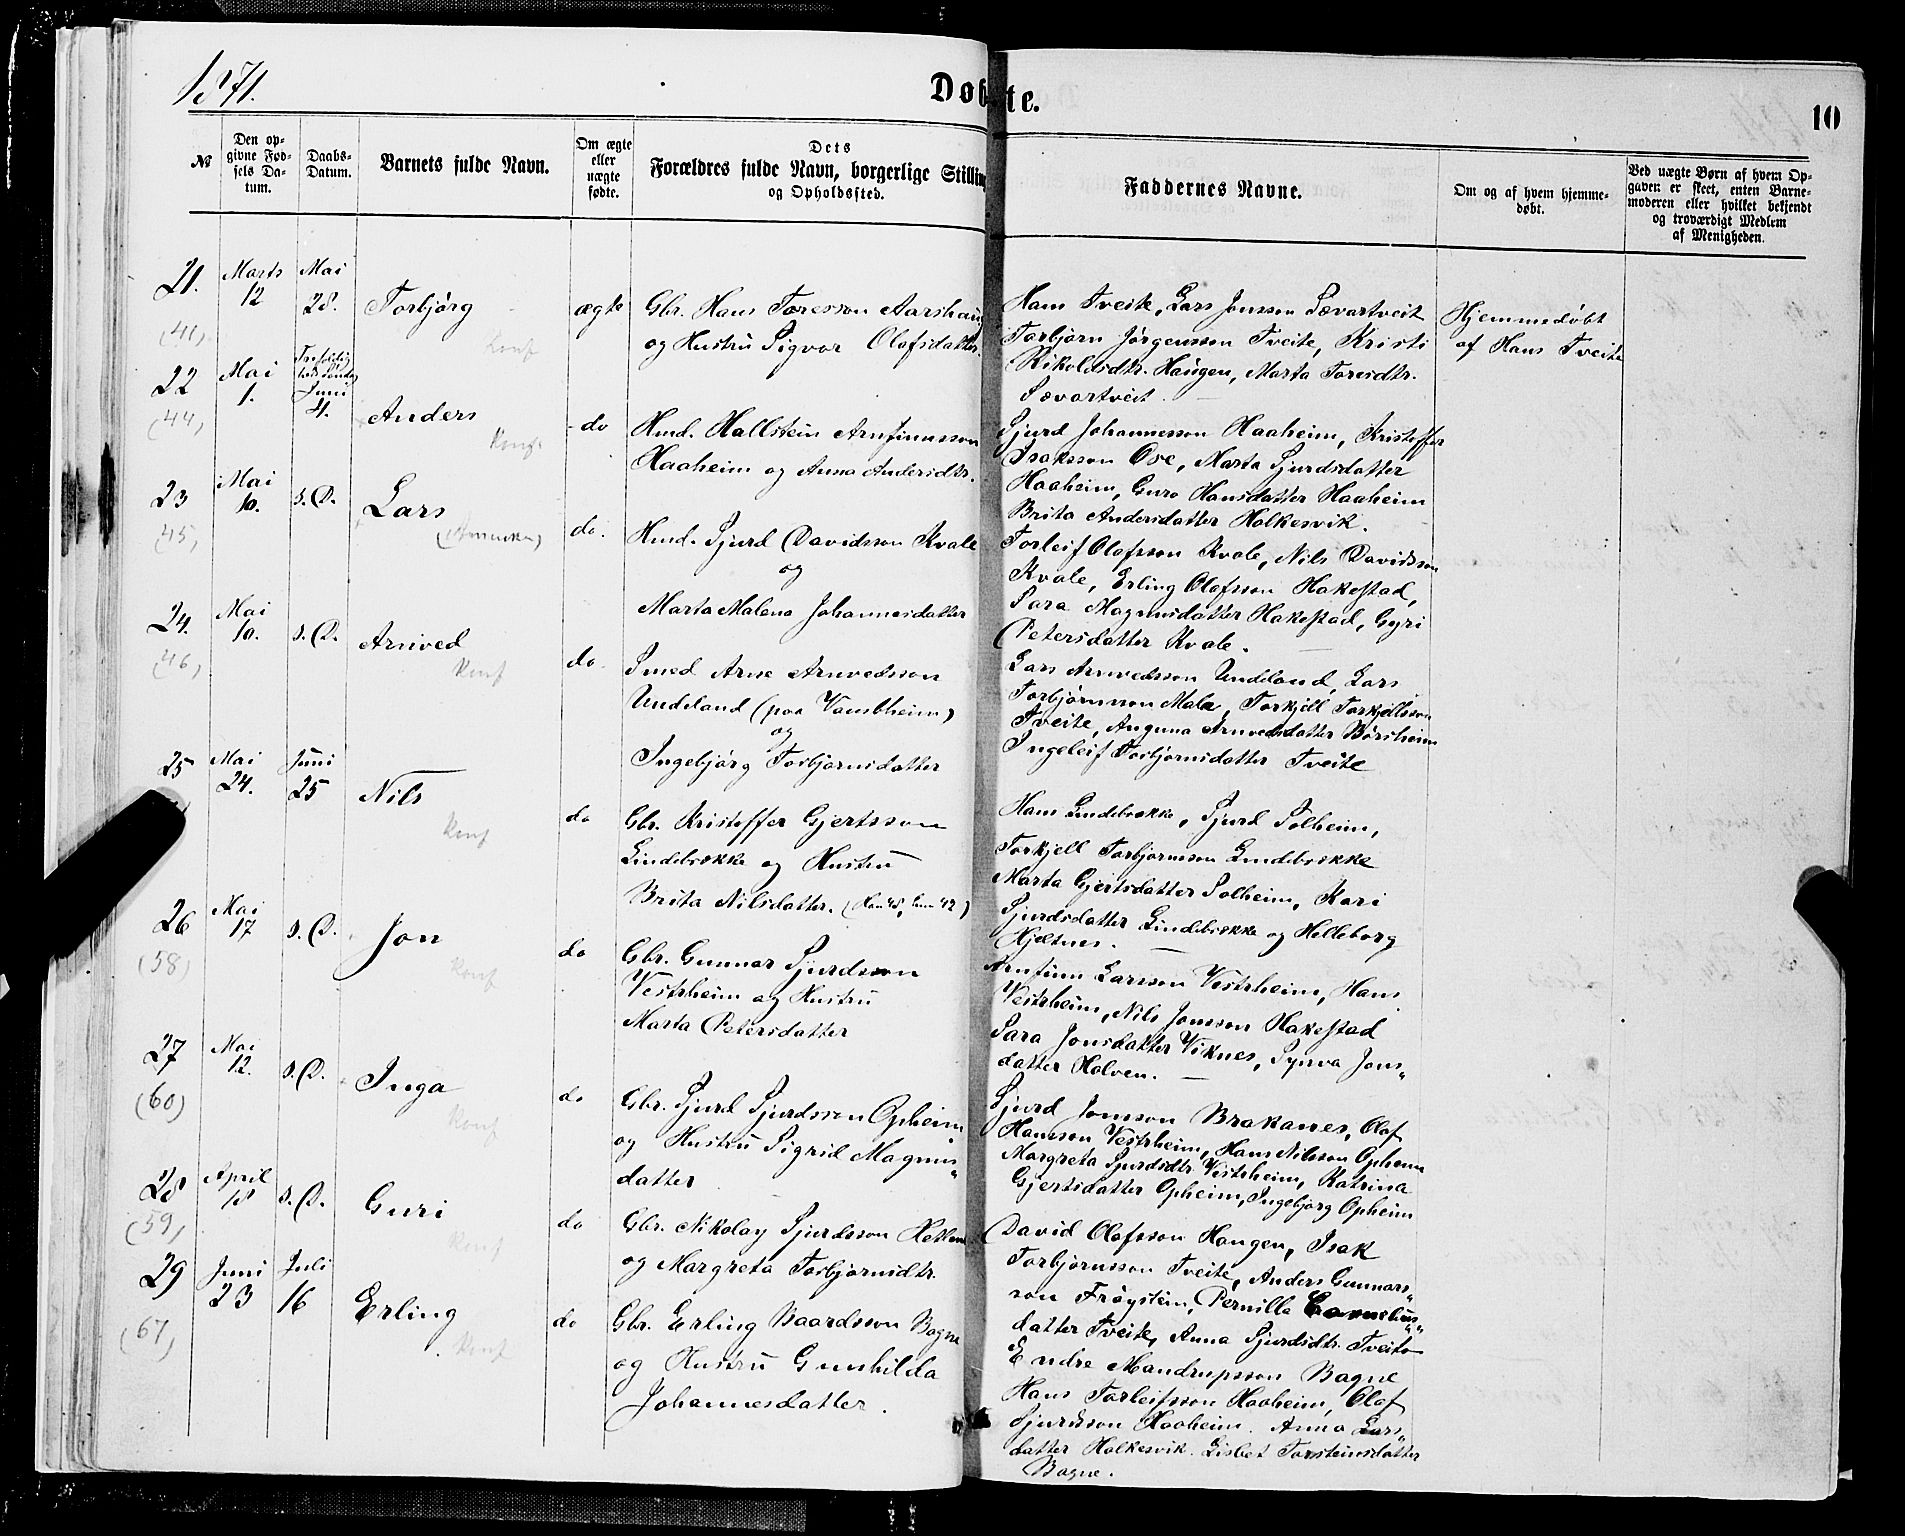 1871.
Døbte.
10
№
Den op-
givne Fød-
sels Da-
tum.
Daabs-
Datum.
Barnets fulde Navn.
Om ægte
eller
uægte
fødte.
Dets
Forældres fulde Navn, borgerlige Stilling
og Opholdssted.
Faddernes Navne.
Om og af hvem hjemme-
døbt.
Ved uægte Børn af hvem Op-
gaven er skeet, enten Barne-
moderen eller hvilket bekjendt
og troværdigt Medlem
af Menigheden.
21.
(41)
Marts
12
Mai
28.
Torbjörg
Konf
ægte
Gbr. Hans Toresson Aarshaug
og Hustru Sigvor Olafsdatter.
Hans Tveite, Lars Jonsson Sævartveit
Torbjörn Jörgensson Tveite, Kristi
Rikoldsdtr. Haugen, Marta Toresdtr.
Sævartveit.
Hjemmedöbt
af Hans Tveite
22
(44)
Mai
1.
Juni
4.
Anders
Konf.
do
Hmd. Hallstein Arnfinnsson
Haaheim og Anna Andersdtr.
Sjurd Johannesson Haaheim, Kristoffer
Isaksson Ose, Marta Sjurdsdatter
Haaheim, Guro Hansdatter Haaheim
Brita Andersdatter Holkesvik.
23
(45)
Mai
10.
s. D.
Lars
do.
Hmd. Sjurd Davidsson Kvale
og
Marta Malena Johannesdatter
Torleif Olafsson Kvale, Nils Davidsson
Kvale, Erling Olafsson Hakestad,
Sara Magnusdatter Hakestad, Gyri
Petersdatter Kvale.
24.
(46)
Mai
10.
s. D.
Arnved
Konf
do.
Smed Arne Arnvedsson
Undeland (paa Vambheim)
og
Ingebjörg Torbjörnsdatter
Lars Arnvedsson Undeland, Lars
Torbjörnsson Mala, Torkjell Torkjellsson
Tveite, Anguna Arnvedsdatter Börsheim
Ingeleif Torbjörnsdatter Tveite
25
Mai
24.
Juni
25
Nils
Konf
do
Gbr. Kristoffer Gjertsson
Lindebrekke og Hustru
Brita Nilsdatter. (Han 48, hun 42)
Hans Lindebrekke, Sjurd Solheim,
Torkjell Torbjörnsson Lindebrekke
Marta Gjertsdatter Solheim, Kari
Sjurdsdatter Lindebrekke og Helleborg
Hjeltnes.
26
(58)
Mai
17
s. D.
Jon
Konf
do
Gbr. Gunnar Sjurdsson
Vestrheim og Hustru
Marta Petersdatter
Arnfinn Larsson Vestrheim, Hans
Vestrheim, Nils Jonsson Hakestad
Sara Jonsdatter Viknes, Synva Jons-
datter Holven.
27
(60)
Mai
12.
s. D.
Inga
Konf
do
Gbr. Sjurd Sjurdsson Opheim
og Hustru Sigrid Magnus-
datter
Sjurd Jonsson Brakanes, Olaf
Hansson Vestrheim, Hans Nilsson Opheim
Margreta Sjurdsdtr. Vestrheim, Katrina
Gjertsdatter Opheim, Ingebjörg Opheim
28
(59)
April
18
s. D.
Guri
Konf
do
Gbr. Nikolay Sjurdsson
og Margreta Torbjörnsdtr.
David Olafsson Haugen, Isak
Torbjörnsson Tveite, Anders Gunnars-
son Fröystein, Pernilla Cornelius-
datter Tveite, Anna Sjurdsdtr. Tveito
29
(67)
Juni
23
Juli
16
Erling
Konf
do
Gbr. Erling Baardsson Bagne
og Hustru Gunhilda
Johannesdatter.
Endre Mandrupsson Bagne
Hans Torleifsson Haaheim, Olaf
Sjurdsson Haaheim. Anna Lars-
datter Holkesvik. Lisbet Torsteinsdatter
Bagne.